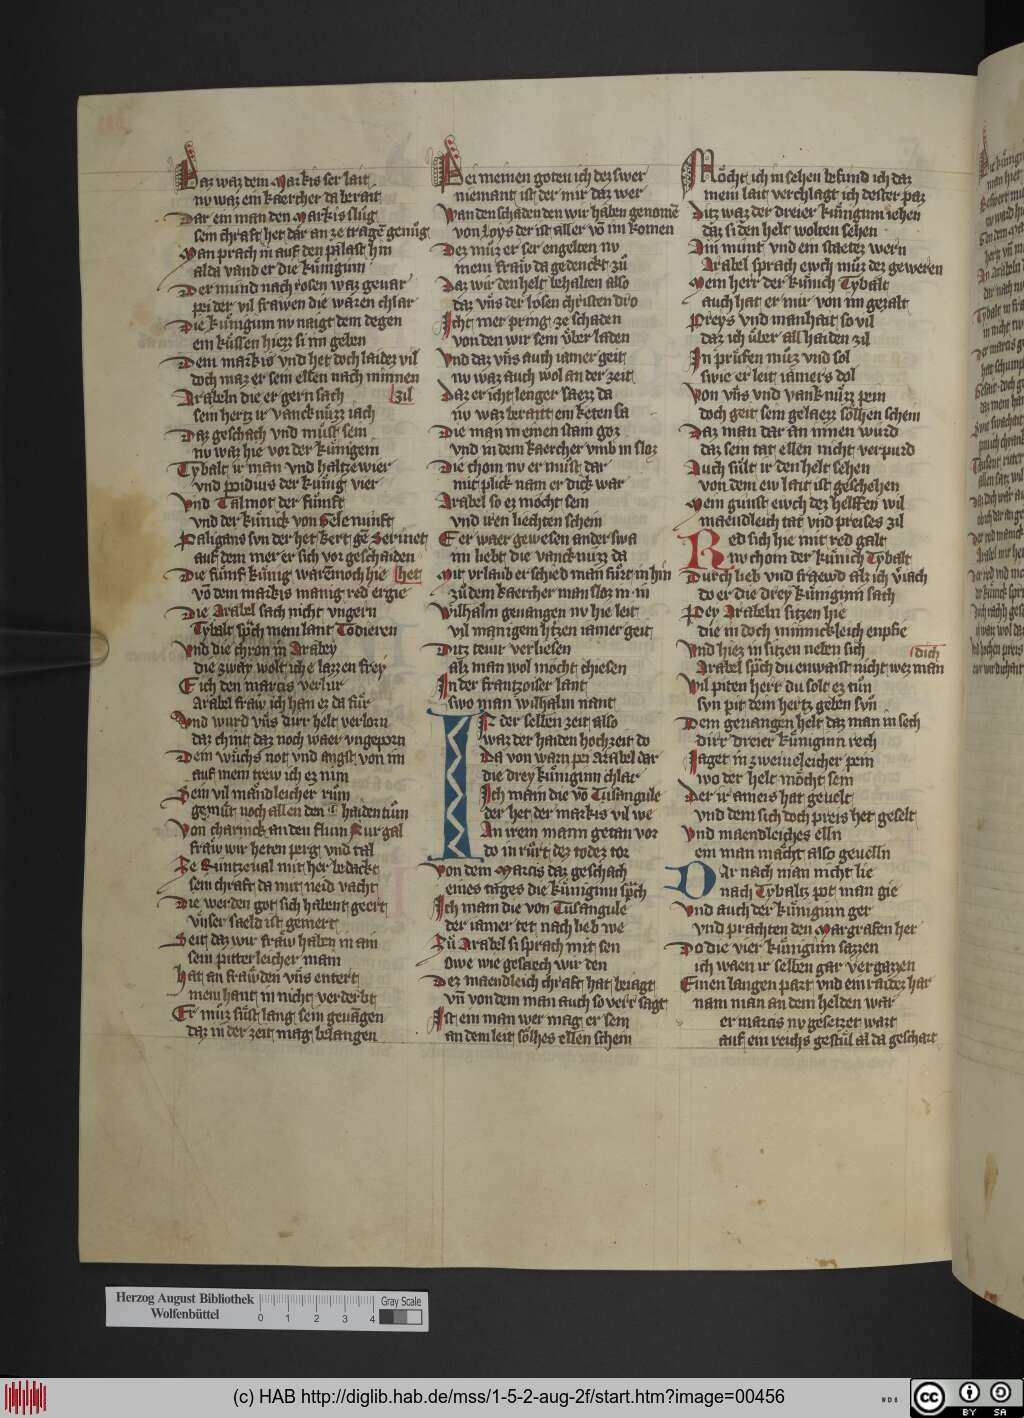 Daz waz dem Markis ser lait
nv waz ein kaercher da berait
Dar ein man den Markis slůg
sein chraft het dar an ze tragē genůg
Man sprach in auf den palast hin
alda vand er die kůniginn
Der mund nach rosen waz geuar
pei der vil frawen die waren chlar
Die kůnigin nv naigt dem degen
ein kůssen hiezz si im geben
Dem markis vnd het doch laidez vil
doch maz er sein ellen nach minnen
Arabeln die er gern sach zil
sein hertz ir vancknůzz iach
Daz geschach vnd můst sein
nv waz hie vor der kůnigein
Tybalt ir man vnd haltzewier
vnd poidius der kůnig vier
Vnd Talimot der fůnft
vnd der kůnick von Selenunft
Paligans svn der het Bert gē Serinet
auf dem mer er sich vor geschaiden
Die fůmf kůnig warēnoch hie het
vō dem markis manig red ergie
Die Arabel sach nicht vngern
Tybalt sp̄ch mein lant Todieren
Vnd die chron in Araben
die zway wolt ich e lazzen frey
E ich den marcis verlur
Arabel fraw ich han ez da fůr
Vnd wurd vn̄s dirr helt verlorn
daz chint daz noch waer vngeporn
Dem wůchs not vnd angst von im
auf mein trew ich ez nim
Sein vil mandleicher rům
gemůt noch allen den haidentům
Von charinck an den flum Kurgal
fraw wir heten perg vnd tal
Ze Runtzeual mit her bedackt
sein chraft da mit neid vacht
Die werden got sich habent geert
vnser saeld ist gemert
Seit daz wir fraw haben in ain
sein pitterleicher main
Hat an fraůden vns entert
mein hant in nicht verderbt
Er můz sůst lang sein geuāgen
daz in der zeit mag belangen
Bei meinen goten ich dez swer
niemant ist der mir daz wer
Wan den schaden den wir haben genomē
von Loys der ist aller vō im komen
Dez můz er ser engelten nv
mein fraw da gedenckt zů
Daz wir den helt behalten also
daz vn̄s der losen christen dro
Icht mer pring ze schaden
von den wir sein vber laden
Vnd daz vn̄s auch iamer geit
nv waz auch wol an der zeit
Daz er icht lenger saezz da
nv waz beraitt ein keten sa
Die man in einen stain goz
vnd in dem kaercher vmb in sloz
Die chom nv er můst dar
mit plick nam er dick war
Arabel so ez mocht sein
vnd iren liechten schein
E er waer gewesen anderswa
im liebt die vancknuzz da
Mit vrlaub er schied man fůrt in hin
zů dem kaercher man sloz in in
Wilhalm geuangen nv hie leit
vil manigem hitzen iamer geit
Ditz teuir verliesen
alz man wol mocht chiesen
In der frantzoiser lant
swo man wilhalm nant
In der selben zeit also
waz der haiden hochzeit do
Da von warn pei Arabel dar
die drey kůniginn chlar
Ich main die vō Tusangule
der het der markis vil we
An irem mann getan vor
do in růrt dez todez tor
Von dem Marcis daz geschach
eines tages die kůniginn sp̄ch
Ich main die von Tusangule
der iamer tet nach lieb we
Zů Arabel si sprach mit sen
Owe wie gesaech wir den
Dez maendleich chraft hat beiagt
vn̄ von dem man auch so verr sagt
Ist ein man wer mag er sein
an dem leit solhes ellen schein
Mocht ich in sehen befund ich daz
mein lait verchlagt ich dester paz
Ditz waz der dreier kůniginn iehen
daz si den helt wolten sehen
Ain munt vnd ein staetez wern
Arabel sprach ewch můz dez geweren
Mein herr der kůnich Tybalt
auch hat er mir von im gezalt
Preys vnd manhait so vil
daz ich ůber all haiden zil
In průfen můz vnd sol
swie er leit iamers dol
Von vn̄s vnd vanknůzz pein
doch geit sein gelaezz solhen schein
Daz man dar an innen wurd
daz sein tat ellen nicht verpurd
Auch sůlt ir den helt sehen
von dem ew lait ist geschehen
Mein gunst ewch dez helffen wil
maendleich tat vnd preises zil
Red sich hie mit red galt
nv chom der kůnich Tybalt
Durch lieb vnd fraewd alz ich v̄iach
do er die drey kůniginn sach
Pey Arabeln sitzen hie
die in doch minnickleich enpfie
Vnd hiez in sitzen neben sich dich
Arabel sp̄ch du enwaist nicht wez man
Wil piten herr du solt ez tůn
svn pit dem hertz geben svn̄
Dem geuangen helt daz man in sech
dirr dreier kůniginn rech
Iaget in zweiueleicher pein
wo der helt mocht sein
Der ir ameis hat geuelt
vnd dem sich doch preis het geselt
Vnd maendleiches elln
ein man macht also geuelln
Dar nach man nicht lie
nach Tybaltz pot man gie
Vnd auch der kůniginn ger
vnd prachten den Margrafen her
Do die vier kůnigim sazzen
ich waen ir selben gar vergazzen
Einen langen part vnd ein raidez har
nam man an dem helden war
er marcis nv gesetzet wart
auf ein reichs gestůl al da geschart
Herzog August Bibliothek
Wolfenbüttel
0 1 2 3 4
Gray Scale
(c) HAB http://diglib.hab.de/mss/1-5-2-aug-2f/start.htm?image=00456
cc BY SA